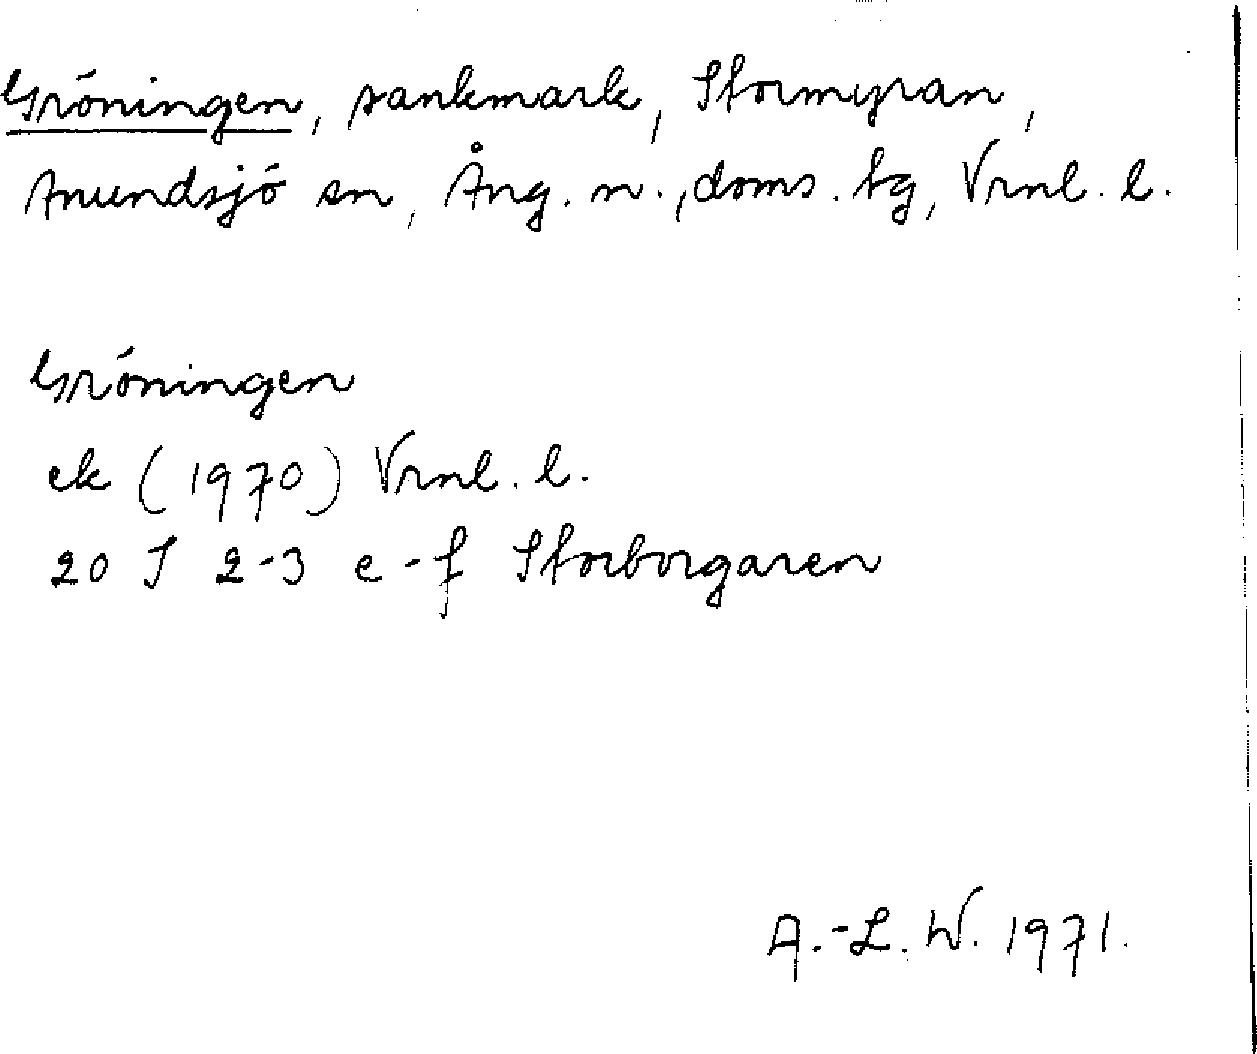 Gröningen, sankmark, Stormyran,
Anundsjö sn, Ång. n., doms. tg, Vrnl. l.
Gröningen
ek (1970) Vrnl. l.
20 J 2-3 e-f Storborgaren
A.-L. W. 1971.